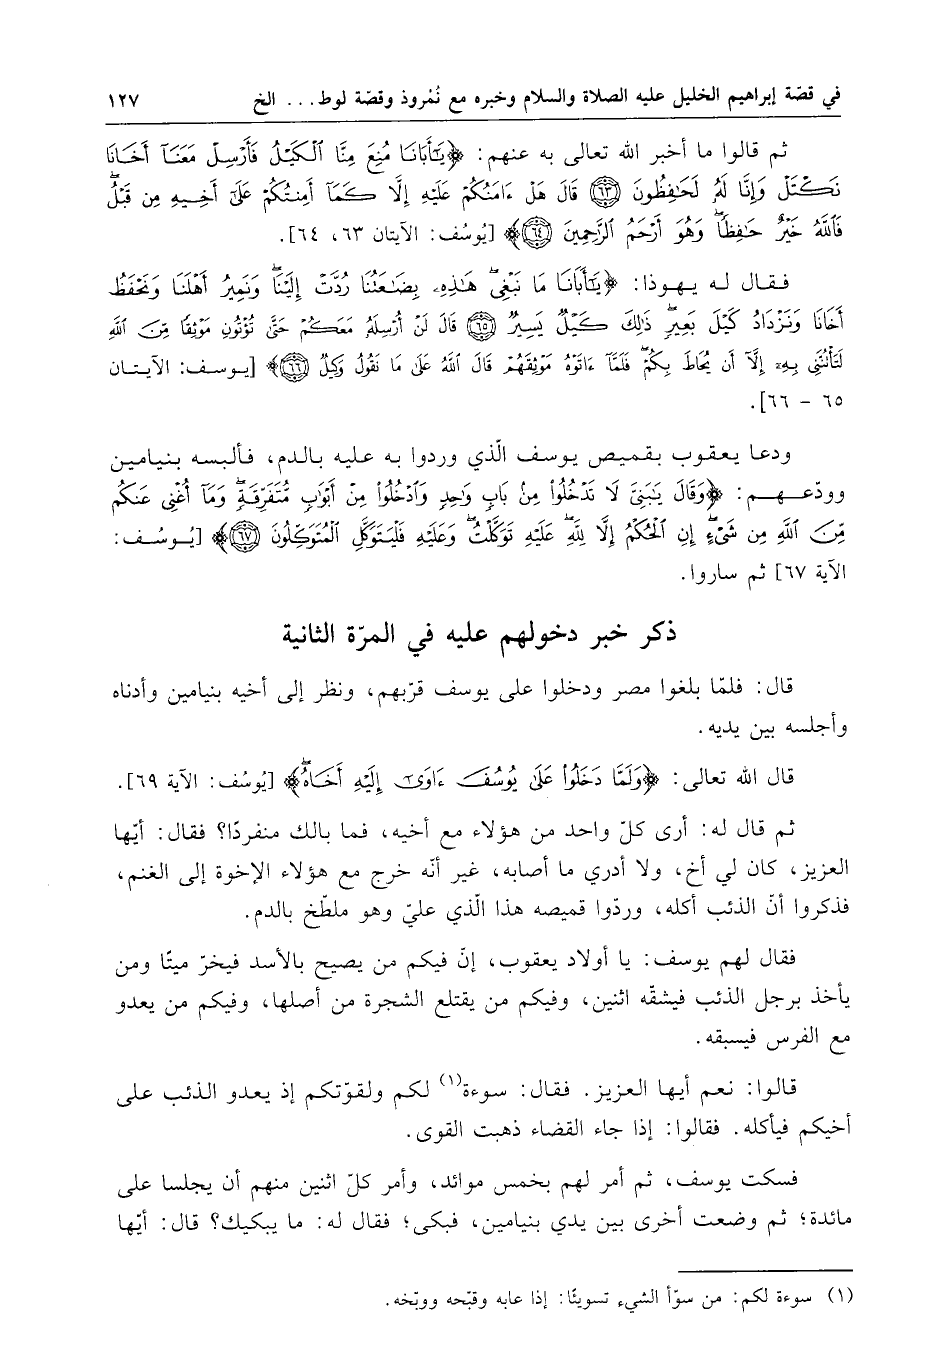 في قصّة إبراهيم الخليل عليه الصلاة والسلام وخبره مع نُمْروذ وقصّة لوط... الخ ١٢٧
ثم قالوا ما أخبر الله تعالى به عنهم: ﴿يَٰٓأَبَانَا مُنِعَ مِنَّا ٱلْكَيْلُ فَأَرْسِلْ مَعَنَآ أَخَانَا
نَكْتَلْ وَإِنَّا لَهُۥ لَحَٰفِظُونَ ﴿٦٣﴾ قَالَ هَلْ ءَامَنُكُمْ عَلَيْهِ إِلَّا كَمَآ أَمِنتُكُمْ عَلَىٰٓ أَخِيهِ مِن قَبْلُۖ
فَٱللَّهُ خَيْرٌ حَٰفِظًاۖ وَهُوَ أَرْحَمُ ٱلرَّٰحِمِينَ ﴿٦٤﴾﴾ [يُوسُف: الآيتان ٦٣، ٦٤].
فقال له يهوذا: ﴿يَٰٓأَبَانَا مَا نَبْغِيۖ هَٰذِهِۦ بِضَٰعَتُنَا رُدَّتْ إِلَيْنَاۖ وَنَمِيرُ أَهْلَنَا وَنَحْفَظُ
أَخَانَا وَنَزْدَادُ كَيْلَ بَعِيرٍۖ ذَٰلِكَ كَيْلٌ يَسِيرٌ ﴿٦٥﴾ قَالَ لَنْ أُرْسِلَهُۥ مَعَكُمْ حَتَّىٰ تُؤْتُونِ مَوْثِقًا مِّنَ ٱللَّهِ
لَتَأْتُنَّنِي بِهِۦٓ إِلَّآ أَن يُحَاطَ بِكُمْۖ فَلَمَّآ ءَاتَوْهُ مَوْثِقَهُمْ قَالَ ٱللَّهُ عَلَىٰ مَا نَقُولُ وَكِيلٌ ﴿٦٦﴾﴾ [يوسف: الآيتان
٦٥ - ٦٦].
ودعا يعقوب بقميص يوسف الّذي وردوا به عليه بالدم، فألبسه بنيامين
وودّعهم: ﴿وَقَالَ يَٰبَنِيَّ لَا تَدْخُلُواْ مِنۢ بَابٍ وَٰحِدٍ وَٱدْخُلُواْ مِنْ أَبْوَٰبٍ مُّتَفَرِّقَةٍۖ وَمَآ أُغْنِي عَنكُم
مِّنَ ٱللَّهِ مِن شَيْءٍۖ إِنِ ٱلْحُكْمُ إِلَّا لِلَّهِۖ عَلَيْهِ تَوَكَّلْتُۖ وَعَلَيْهِ فَلْيَتَوَكَّلِ ٱلْمُتَوَكِّلُونَ ﴿٦٧﴾﴾ [يُوسُف:
الآية ٦٧] ثم ساروا.
ذكر خبر دخولهم عليه في المرّة الثانية
قال: فلمّا بلغوا مصر ودخلوا على يوسف قرّبهم، ونظر إلى أخيه بنيامين وأدناه
وأجلسه بين يديه.
قال الله تعالى: ﴿وَلَمَّا دَخَلُواْ عَلَىٰ يُوسُفَ ءَاوَىٰٓ إِلَيْهِ أَخَاهُۖ﴾ [يُوسُف: الآية ٦٩].
ثم قال له: أرى كلّ واحد من هؤلاء مع أخيه، فما بالك منفردًا؟ فقال: أيّها
العزيز، كان لي أخ، ولا أدري ما أصابه، غير أنّه خرج مع هؤلاء الإخوة إلى الغنم،
فذكروا أنّ الذئب أكله، وردّوا قميصه هذا الّذي عليّ وهو ملطّخ بالدم.
فقال لهم يوسف: يا أولاد يعقوب، إنّ فيكم من يصيح بالأسد فيخرّ ميتًا ومن
يأخذ برجل الذئب فيشقّه اثنين، وفيكم من يقتلع الشجرة من أصلها، وفيكم من يعدو
مع الفرس فيسبقه.
قالوا: نعم أيها العزيز. فقال: سوءة(١) لكم ولقوّتكم إذ يعدو الذئب على
أخيكم فيأكله. فقالوا: إذا جاء القضاء ذهبت القوى.
فسكت يوسف، ثم أمر لهم بخمس موائد، وأمر كلّ اثنين منهم أن يجلسا على
مائدة؛ ثم وضعت أخرى بين يدي بنيامين، فبكى؛ فقال له: ما يبكيك؟ قال: أيّها
(١) سوءة لكم: من سوّأ الشيء تسويئًا: إذا عابه وقبّحه ووبّخه.